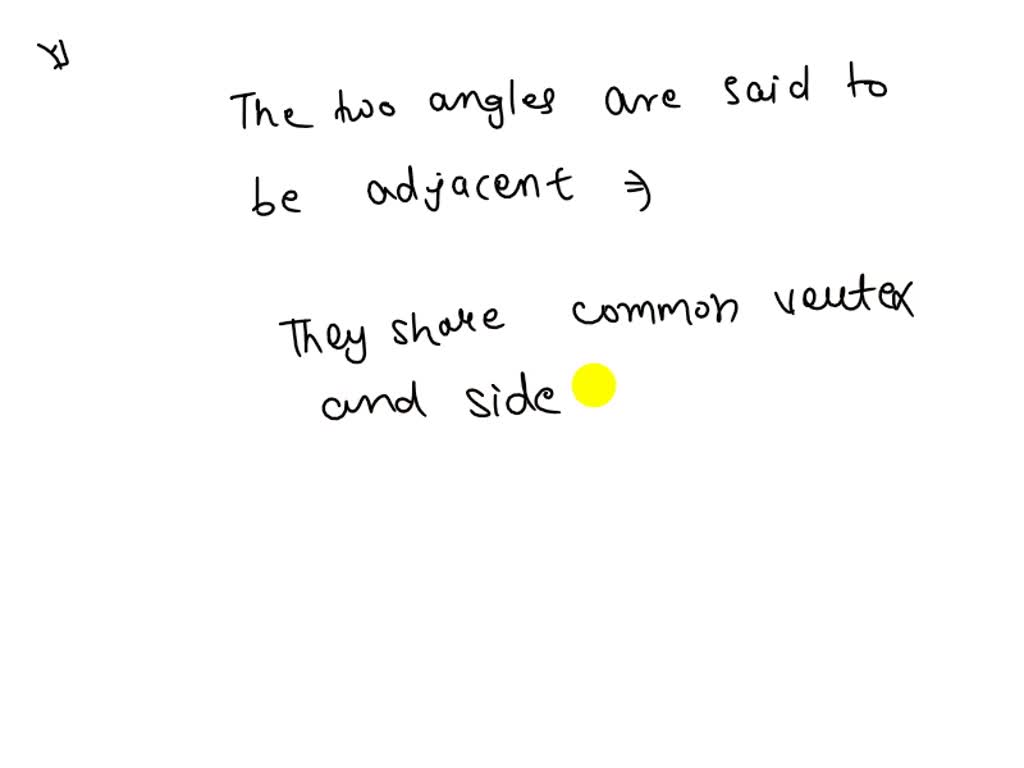 The two angles are said to
be adjacent ⇒
They share common vertex
and side